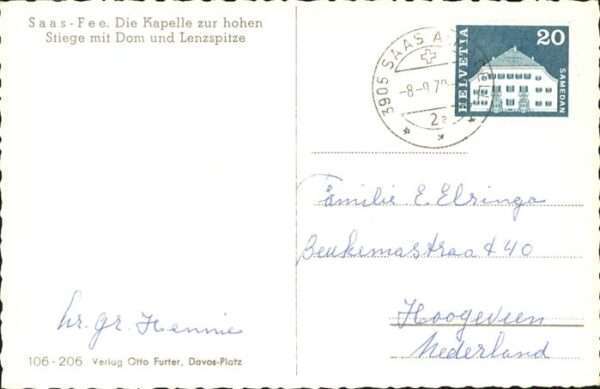 Saas-Fee. Die Kapelle zur hohen
Stiege mit Dom und Lenzspitze
3905 SAAS A
-8-9.70
2a
HELVETIA
20
SAMEDAN
Familie E. Elringa
Beukemastraat 40
Hoogeveen
Nederland
hr. gr. Hennie
106-206 Verlag Otto Furter, Davos-Platz